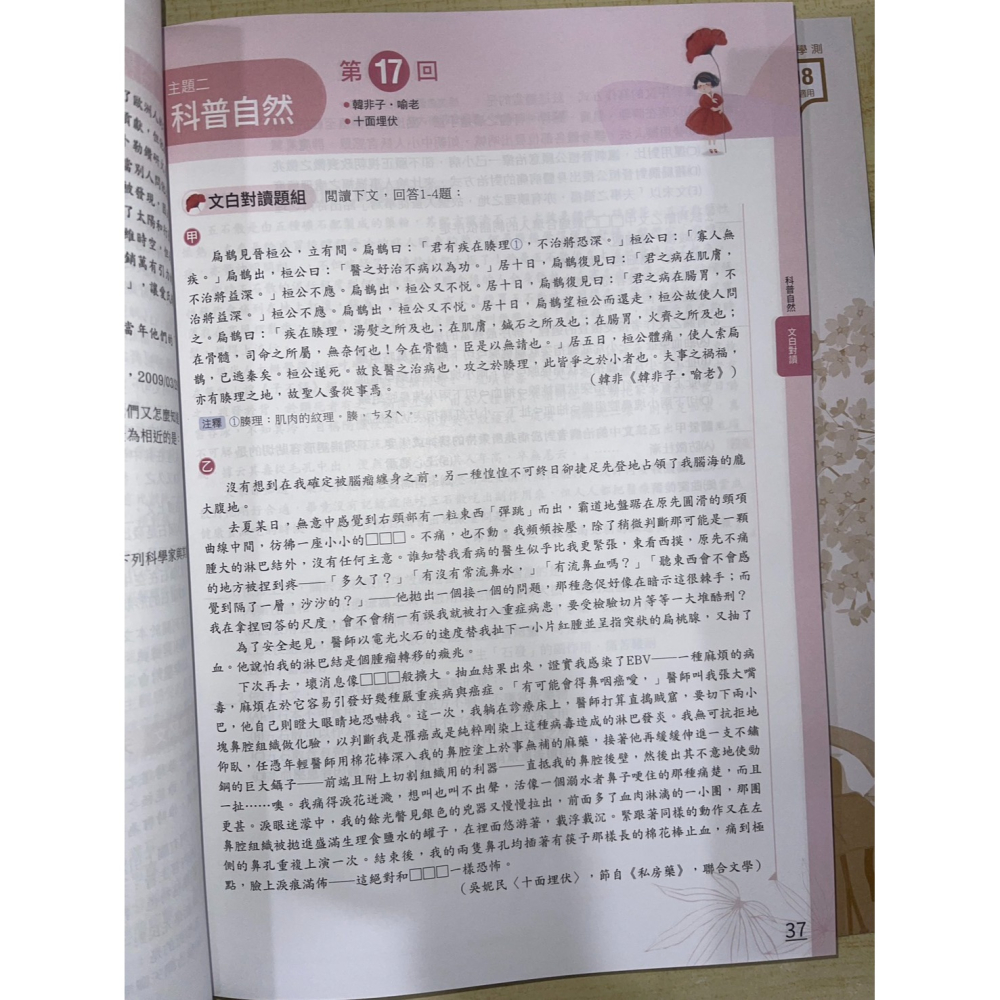 主題二
科普自然
第17回
•韓非子•喻老
•十面埋伏
學測
8
適用
文白對讀題組 閱讀下文,回答1-4題:
甲
扁鵲見晉桓公,立有間。扁鵲曰:「君有疾在腠理①,不治將恐深。」桓公曰:「寡人無
疾。」扁鵲出,桓公曰:「醫之好治不病以為功。」居十日,扁鵲復見曰:「君之病在肌膚,
不治將益深。」桓公不應。扁鵲出,桓公又不悅。居十日,扁鵲復見曰:「君之病在腸胃,不
治將益深。」桓公不應。扁鵲出,桓公又不悅。居十日,扁鵲望桓公而還走,桓公故使人問
之。扁鵲曰:「疾在腠理,湯熨之所及也;在肌膚,鍼石之所及也;在腸胃,火齊之所及也;
在骨髓,司命之所屬,無奈何也!今在骨髓,臣是以無請也。」居五日,桓公體痛,使人索扁
鵲,已逃秦矣。桓公遂死。故良醫之治病也,攻之於腠理,此皆爭之於小者也。夫事之禍福,
亦有腠理之地,故聖人蚤從事焉。
(韓非《韓非子•喻老》)
注釋 ①腠理:肌肉的紋理。腠,ㄘㄡˋ。
乙
沒有想到在我確定被腦瘤纏身之前,另一種惶惶不可終日卻捷足先登地占領了我腦海的龐
大腹地。
去夏某日,無意中感覺到右頸部有一粒東西「彈跳」而出,霸道地盤踞在原先圓滑的頸項
曲線中間,彷彿一座小小的□□□。不痛,也不動。我頻頻按壓,除了稍微判斷那可能是一顆
腫大的淋巴結外,沒有任何主意。誰知替我看病的醫生似乎比我更緊張,東看西摸,原先不痛
的地方被捏到疼——「多久了?」「有沒有常流鼻水,」「有流鼻血嗎?」「聽東西會不會感
覺到隔了一層,沙沙的?」——他拋出一個接一個的問題,那種急促好像在暗示這很棘手;而
我在拿捏回答的尺度,會不會稍一有誤我就被打入重症病患,要受檢驗切片等等一大堆酷刑?
為了安全起見,醫師以電光火石的速度替我扯下一小片紅腫並呈指突狀的扁桃腺,又抽了
血。他說怕我的淋巴結是個腫瘤轉移的癥兆。
下次再去,壞消息像□□□般擴大。抽血結果出來,證實我感染了EBV——一種麻煩的病
毒,麻煩在於它容易引發好幾種嚴重疾病與癌症。「有可能會得鼻咽癌噯,」醫師叫我張大嘴
巴,他自己則瞪大眼睛地恐嚇我。這一次,我躺在診療床上,醫師打算直搗賊窟,要切下兩小
塊鼻腔組織做化驗,以判斷我是罹癌或是純粹剛染上這種病毒造成的淋巴發炎。我無可抗拒地
仰臥,任憑年輕醫師用棉花棒深入我的鼻腔塗上於事無補的麻藥,接著他再緩緩伸進一支不鏽
鋼的巨大鑷子——前端且附上切割組織用的利器——直抵我的鼻腔後壁,然後出其不意地使勁
一扯……噢。我痛得淚花迸濺,想叫也叫不出聲,活像一個溺水者鼻子哽住的那種痛楚,而且
更甚。淚眼迷濛中,我的餘光瞥見銀色的兇器又慢慢拉出,前面多了血肉淋漓的一小團,那團
鼻腔組織被拋進盛滿生理食鹽水的罐子,在裡面悠游著,載浮載沉。緊跟著同樣的動作又在左
側的鼻孔重複上演一次。結束後,我的兩隻鼻孔均插著有筷子那樣長的棉花棒止血,痛到極
點,臉上淚痕滿佈——這絕對和□□□一樣恐怖。
(吳妮民〈十面埋伏〉,節自《私房藥》,聯合文學)
科普自然
文白對讀
37